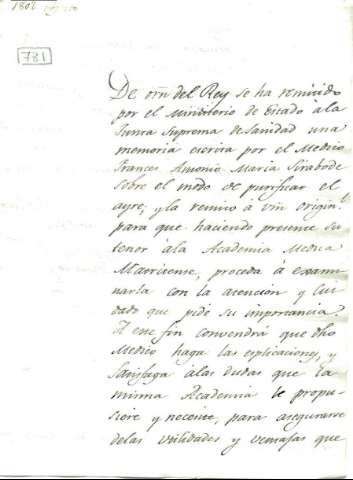 1802
781
De orn del Rey se ha remitido
por el Ministerio de Estado â la
Junta Suprema de Sanidad una
memoria escrita por el Medico
Frances Antonio Maria Sirabode
sobre el modo de purificar el
ayre; y la remito a vm origin.l
para que haciendo presente su
tenor âla Academia Medica
Matritense, proceda â exami
narla con la atencion y cui
dado que pide su importancia.
A ese fin convendrá que dho
Medico haga las esplicaciones, y
satisfaga alas dudas que la
misma Academia le propu-
siere y necesite, para asegurarse
delas utilidades y ventajas que